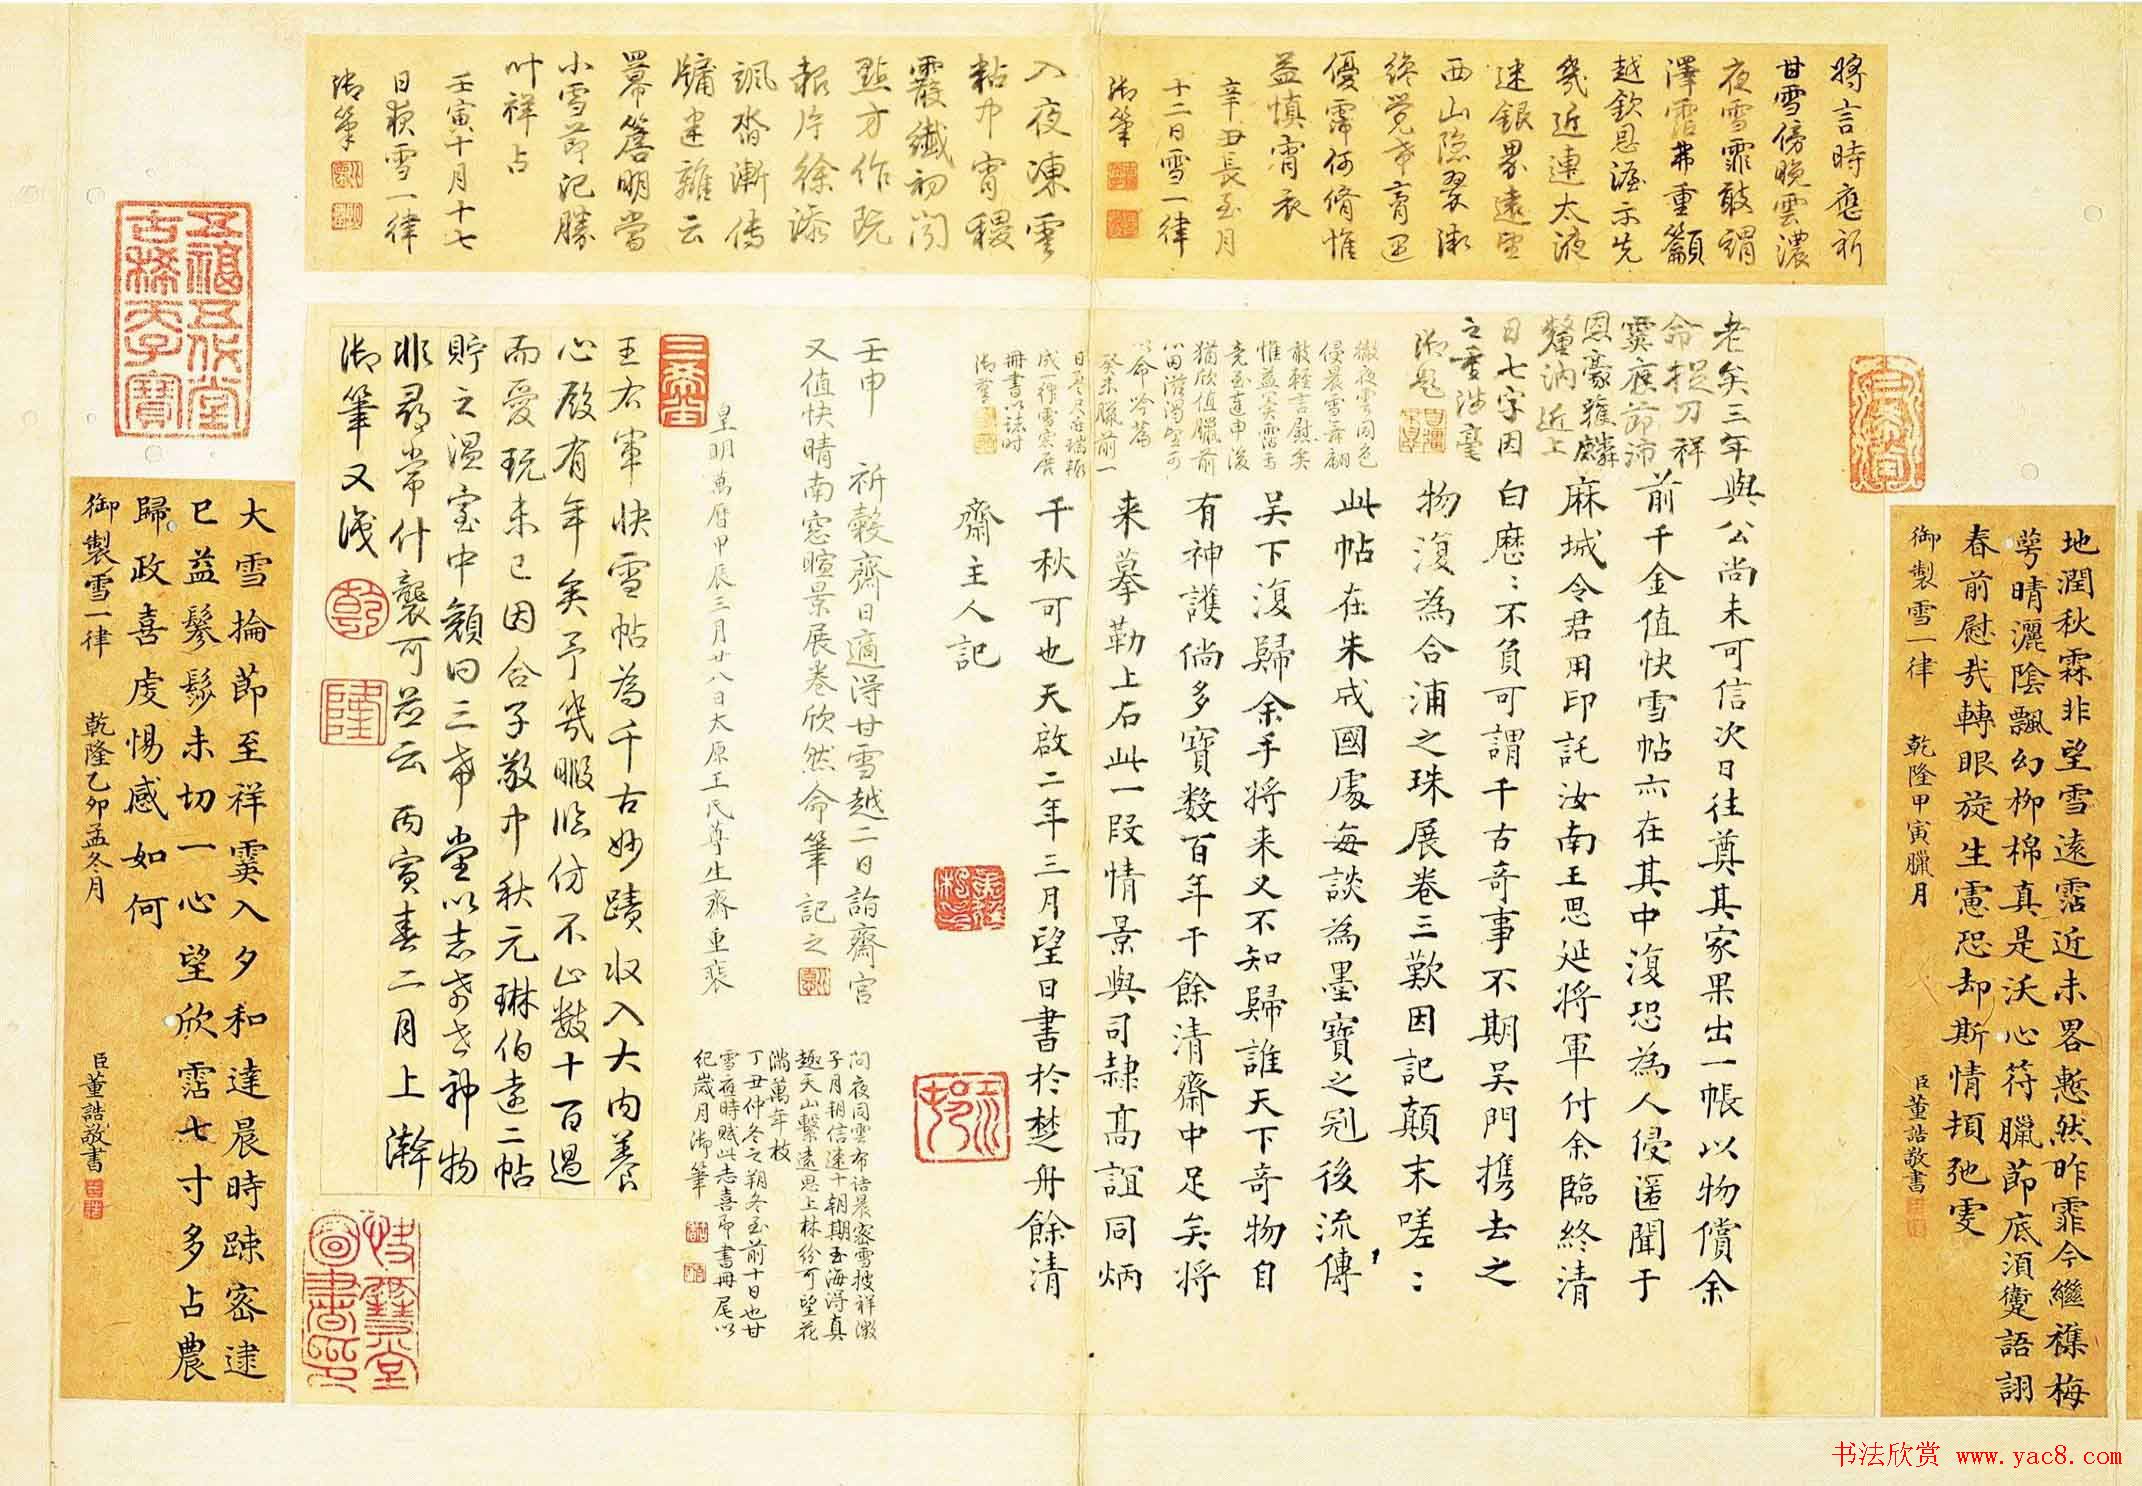 將言時應祈
甘雪傍晚雲濃
夜雪霏敢謂
澤霑弗重籲
越欽恩渥示先
幾近連太液
迷銀界遠望
西山隱翠微
終覺希膏迓
優霈何脩惟
益慎宵衣
辛丑長至月
十二日雪一律
御筆
入夜凍雲
粘巾宵稷
霰纖初閱
點方作玩
報片徐添
颯沓漸傳
牖建雜云
羃簷明當
小雪節記勝
叶祥占
壬寅十月十七
日夜雪一律
御筆
地潤秋霖非望雪遠霑近未畧慙然昨霏今繼襍梅
萼晴灑陰飄幻柳棉真是沃心符臘節底須虁語詡
春前慰哉轉眼旋生慮恐却斯情頓弛虔
御製雪一律 乾隆甲寅臘月 臣董誥敬書
老矣三年與公尚未可信次日往奠其家果出一帳以物償余
前千金值快雪帖亦在其中復恐為人侵匿聞于
麻城令君用印託汝南王思延將軍付余臨終清
白歷歷不負可謂千古奇事不期吳門携去之
物復為合浦之珠展卷三歎因記顛末嗟嗟
此帖在朱成國處每談為墨寶之冠後流傳
吳下復歸余手將来又不知歸誰天下奇物自
有神護倘多寶數百年于餘清齋中足矣將
来摹勒上石此一段情景與司隸高誼同炳
千秋可也天啟二年三月望日書於楚舟餘清
齋主人記
命捉刀祥
霙應節沛
恩豪雖麟
日七字因
之重浣毫
御題
徹夜雲同色
侵晨雪舞翩
敢輕言慰矣
惟益冀霑焉
亮至達申後
猶欣值臘前
心田滋渴望可
以命吟篇
癸未臘前一
成律雪窓展
冊書以誌時
御筆
壬申 祈穀齋日適得甘雪越二日詣齋宮
又值快晴南窓暄景展卷欣然命筆記之
皇明萬曆甲辰三月廿八日太原王氏尊生齋重裝
同夜同雲布詰晨密雪披祥徵
子月朔信速十朝期玉海浮真
趣天山繫遠思上林紛可望花
滿萬年枝
丁丑仲冬之朔冬至前十日也甘
雪應時賦此志喜即書冊尾以
紀歲月御筆
王右軍快雪帖為千古妙蹟收入大内養
心殿有年矣予幾暇臨仿不止數十百過
而愛玩未已因合子敬中秋元琳伯遠二帖
貯之溫室中顏曰三希堂以志希世神物
非尋常什襲可並云丙寅春二月上澣
御筆又識
乾
隆
三希堂
五福五代堂
古稀天子寶
快雪堂
圖書印
大雪掄節至祥霙入夕和達晨時踈密逮
已益鬖髿未切一心望欣霑七寸多占農
歸政喜虔惕感如何
御製雪一律 乾隆乙卯孟冬月 臣董誥敬書
书法欣赏 www.yac8.com